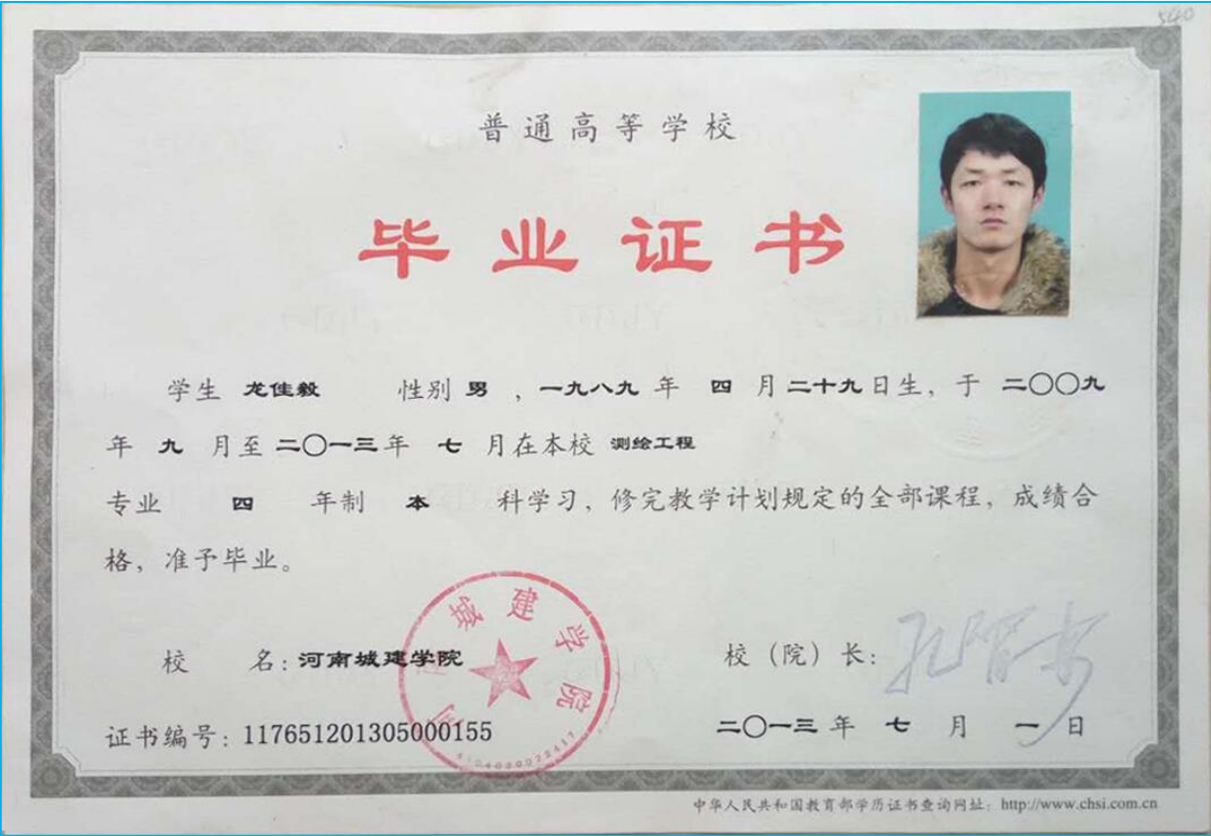 540
普通高等学校
毕业证书
学生 龙佳毅 性别 男 ，一九八九 年 四 月 二十九 日生，于 二〇〇九
年 九 月至 二〇一三 年 七 月在本校 测绘工程
专业 四 年制 本 科学习，修完教学计划规定的全部课程，成绩合
格，准予毕业。
校 名：河南城建学院
校（院）长：
证书编号：117651201305000155
二〇一三 年 七 月 一 日
河南城建学院
中华人民共和国教育部学历证书查询网址：http://www.chsi.com.cn